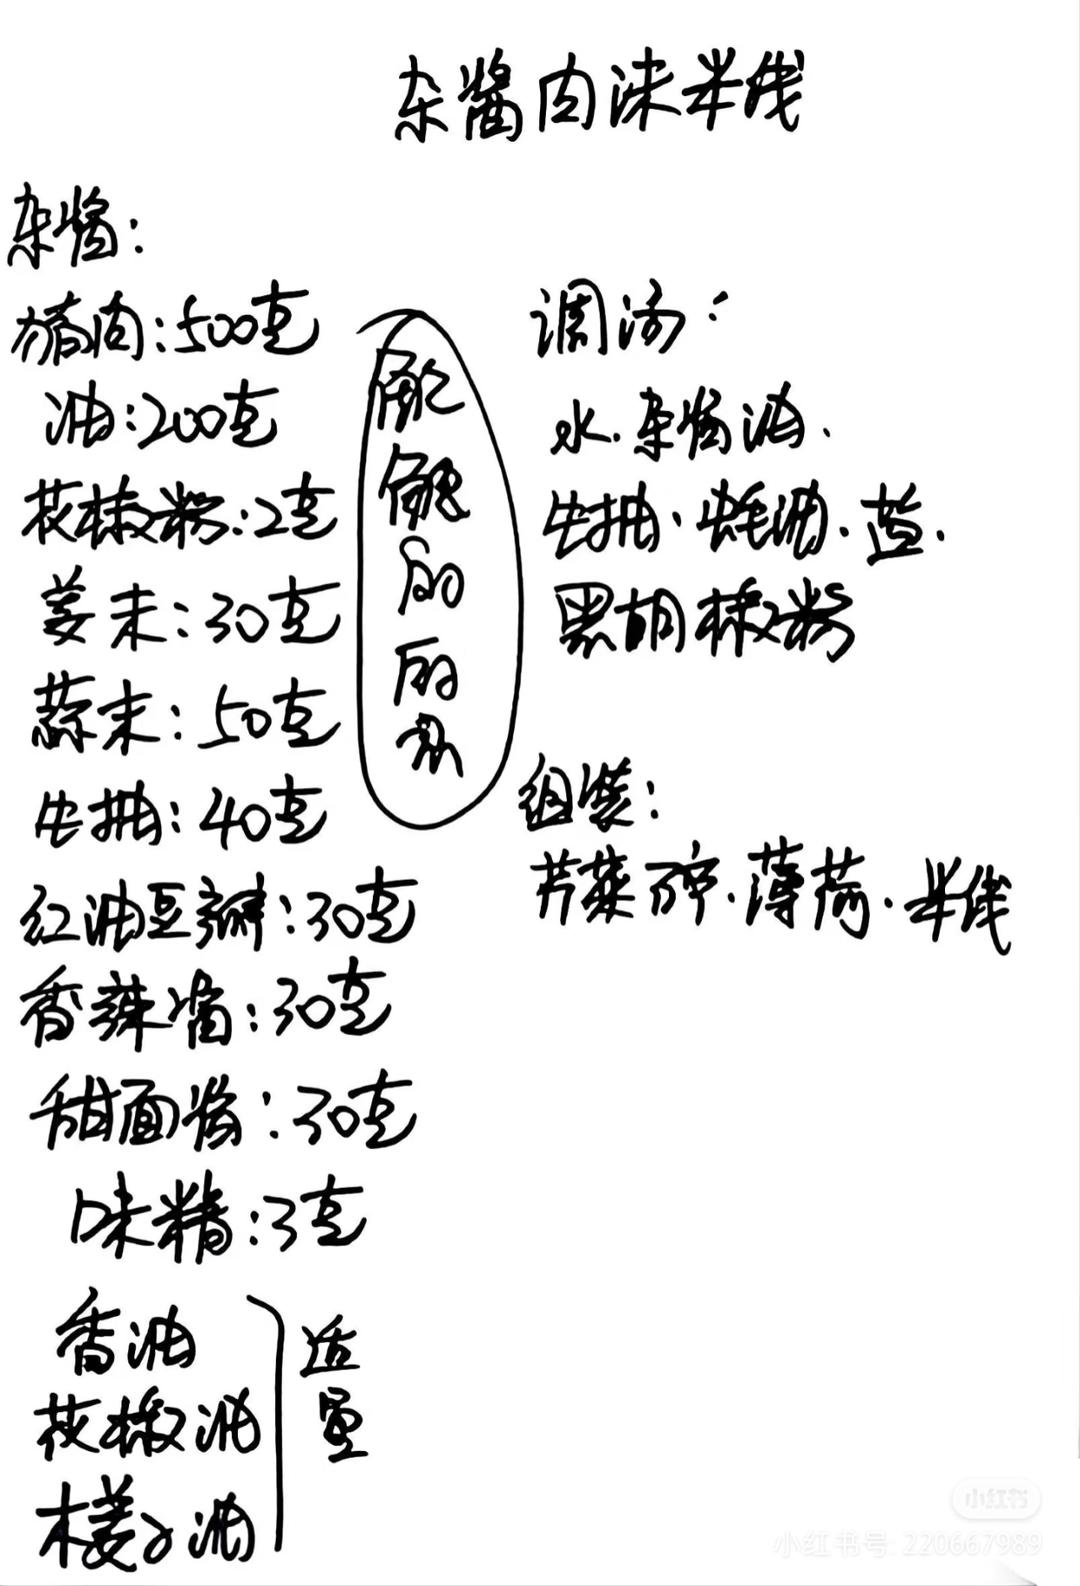 杂酱肉沫米线
杂酱:
猪肉:500克
油:200克
花椒粉:2克
姜末:30克
蒜末:50克
生抽:40克
红油豆瓣:30克
香辣酱:30克
甜面酱:30克
味精:3克
香油
花椒油
木姜子油
适
量
调汤:
水.杂酱油.
生抽.蚝油.盐.
黑胡椒粉
组装:
芹菜碎.薄荷.米线
小红书
小红书号: 220667989